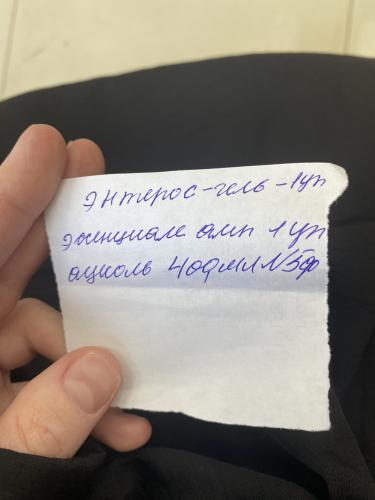 энтерос-гель-1уп
эсенциале амп 1уп
ацколь 400мл N5ф